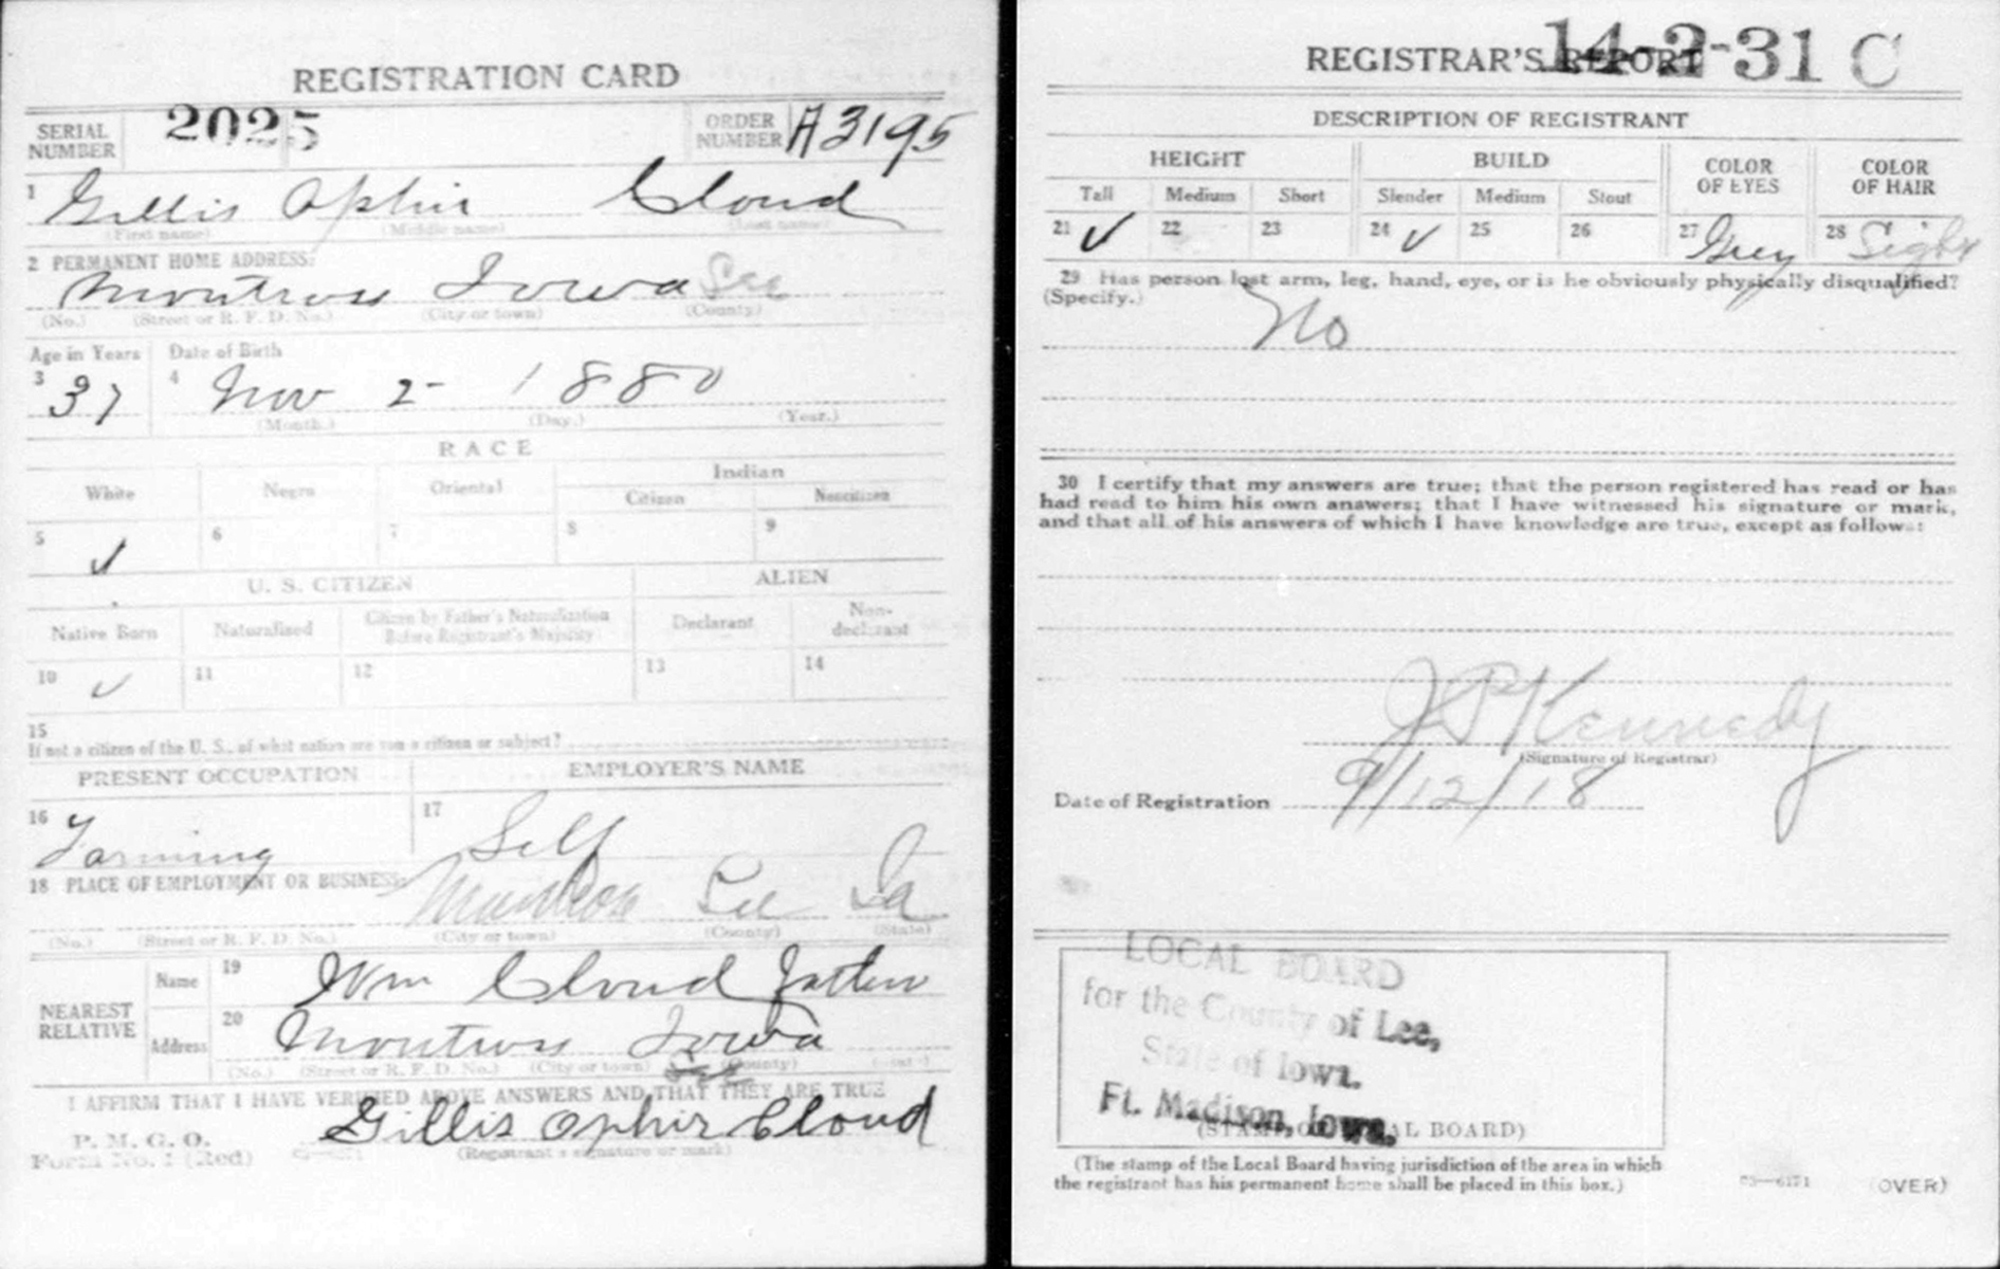 REGISTRATION CARD
SERIAL NUMBER 2025 ORDER NUMBER A3195
1 Gillis Ophir Cloud
(First name) (Middle name) (Last name)
2 PERMANENT HOME ADDRESS:
Montrose Iowa Lee
(No.) (Street or R. F. D. No.) (City or town) (County)
Age in Years Date of Birth
3 37 4 Nov 2- 1880
(Month.) (Day.) (Year.)
RACE
White Negro Oriental Indian
Citizen Noncitizen
5 ✓ 6 7 8 9
U. S. CITIZEN ALIEN
Native Born Naturalized Citizen by Father's Naturalization Before Registrant's Majority Declarant Non-declarant
10 ✓ 11 12 13 14
15
If not a citizen of the U. S., of what nation are you a citizen or subject?
PRESENT OCCUPATION EMPLOYER'S NAME
16 Farming 17 Self
18 PLACE OF EMPLOYMENT OR BUSINESS:
Montrose Lee Ia
(No.) (Street or R. F. D. No.) (City or town) (County) (State)
NEAREST RELATIVE
Name 19 Wm Cloud father
Address 20 Montrose Iowa
(No.) (Street or R. F. D. No.) (City or town) (County)
Lee
I AFFIRM THAT I HAVE VERIFIED ABOVE ANSWERS AND THAT THEY ARE TRUE
P. M. G. O.
Form No. 1 (Red)
Gillis Ophir Cloud
(Registrant's signature or mark)
REGISTRAR'S REPORT
14-2-31 C
DESCRIPTION OF REGISTRANT
HEIGHT BUILD COLOR OF EYES COLOR OF HAIR
Tall Medium Short Slender Medium Stout
21 ✓ 22 23 24 ✓ 25 26 27 Grey 28 Light
29 Has person lost arm, leg, hand, eye, or is he obviously physically disqualified?
(Specify.)
No
30 I certify that my answers are true; that the person registered has read or has
had read to him his own answers; that I have witnessed his signature or mark,
and that all of his answers of which I have knowledge are true, except as follows:
J P Kennedy
(Signature of Registrar)
Date of Registration 9/12/18
LOCAL BOARD
for the County of Lee,
State of Iowa.
Ft. Madison, Iowa.
(STAMP OF LOCAL BOARD)
(The stamp of the Local Board having jurisdiction of the area in which
the registrant has his permanent home shall be placed in this box.)
03—6171 (OVER)